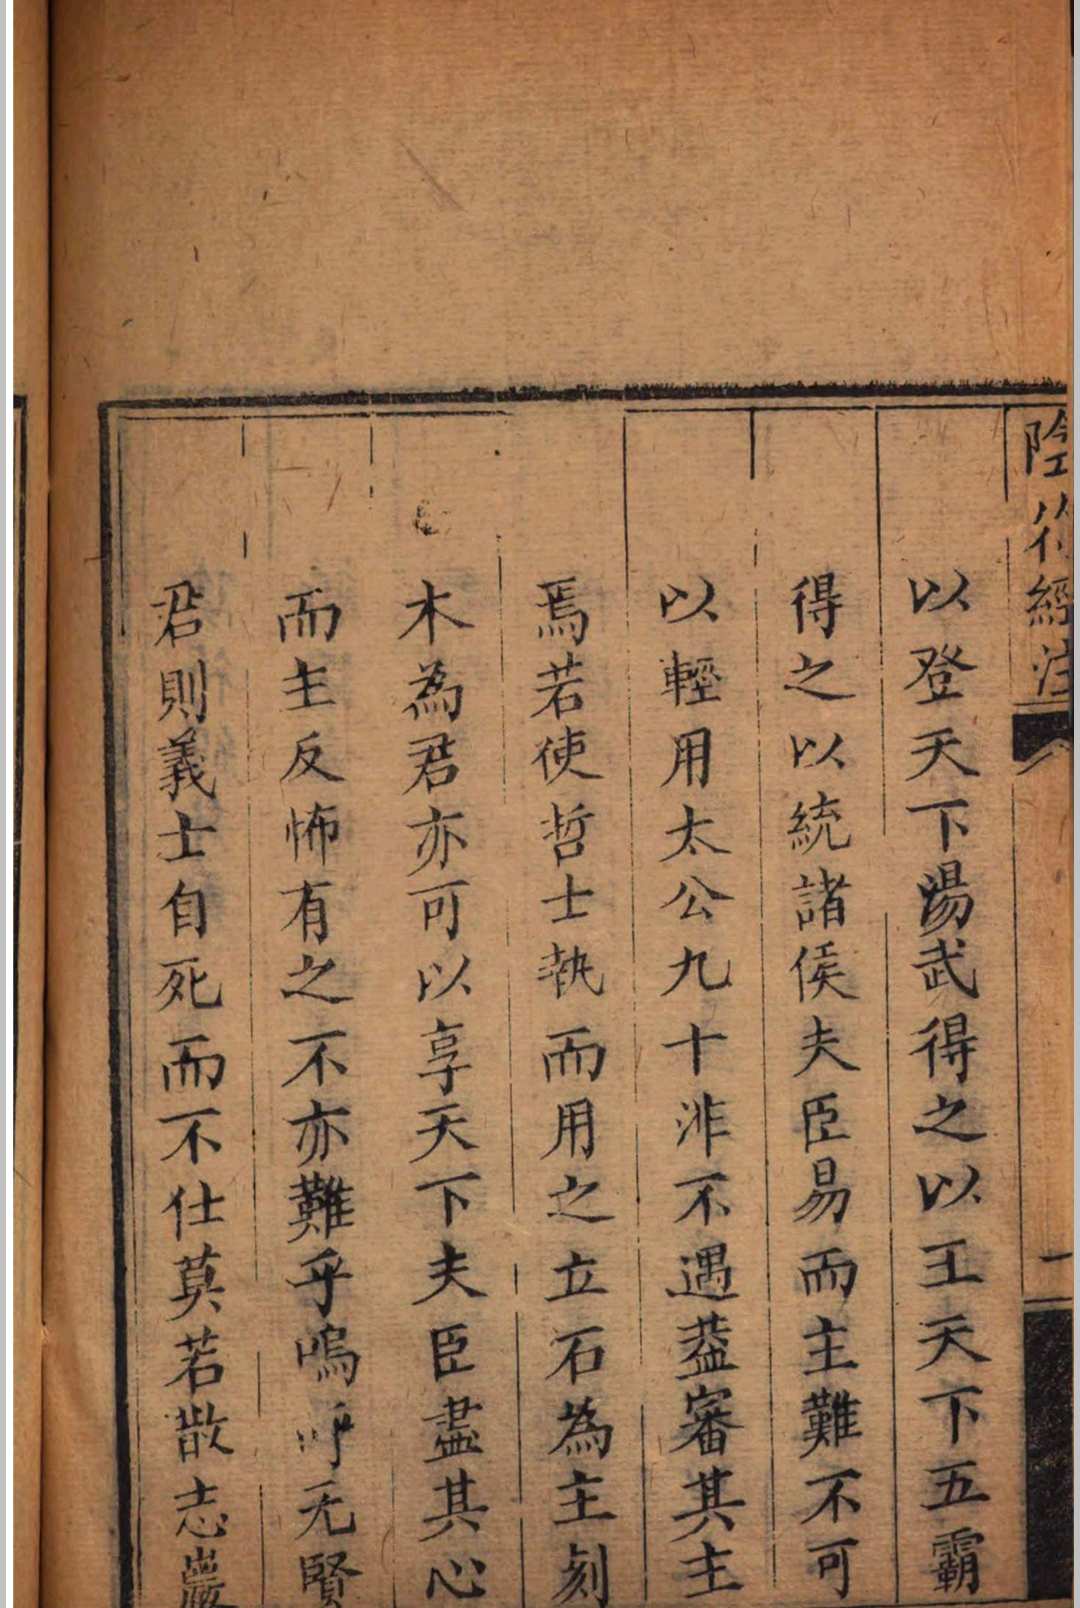 陰符經注
一
以登天下湯武得之以王天下五霸
得之以統諸侯夫臣易而主難不可
以輕用太公九十非不遇葢審其主
焉若使哲士執而用之立石為主刻
木為君亦可以享天下夫臣盡其心
而主反怖有之不亦難乎嗚呼无賢
君則義士自死而不仕莫若散志巖